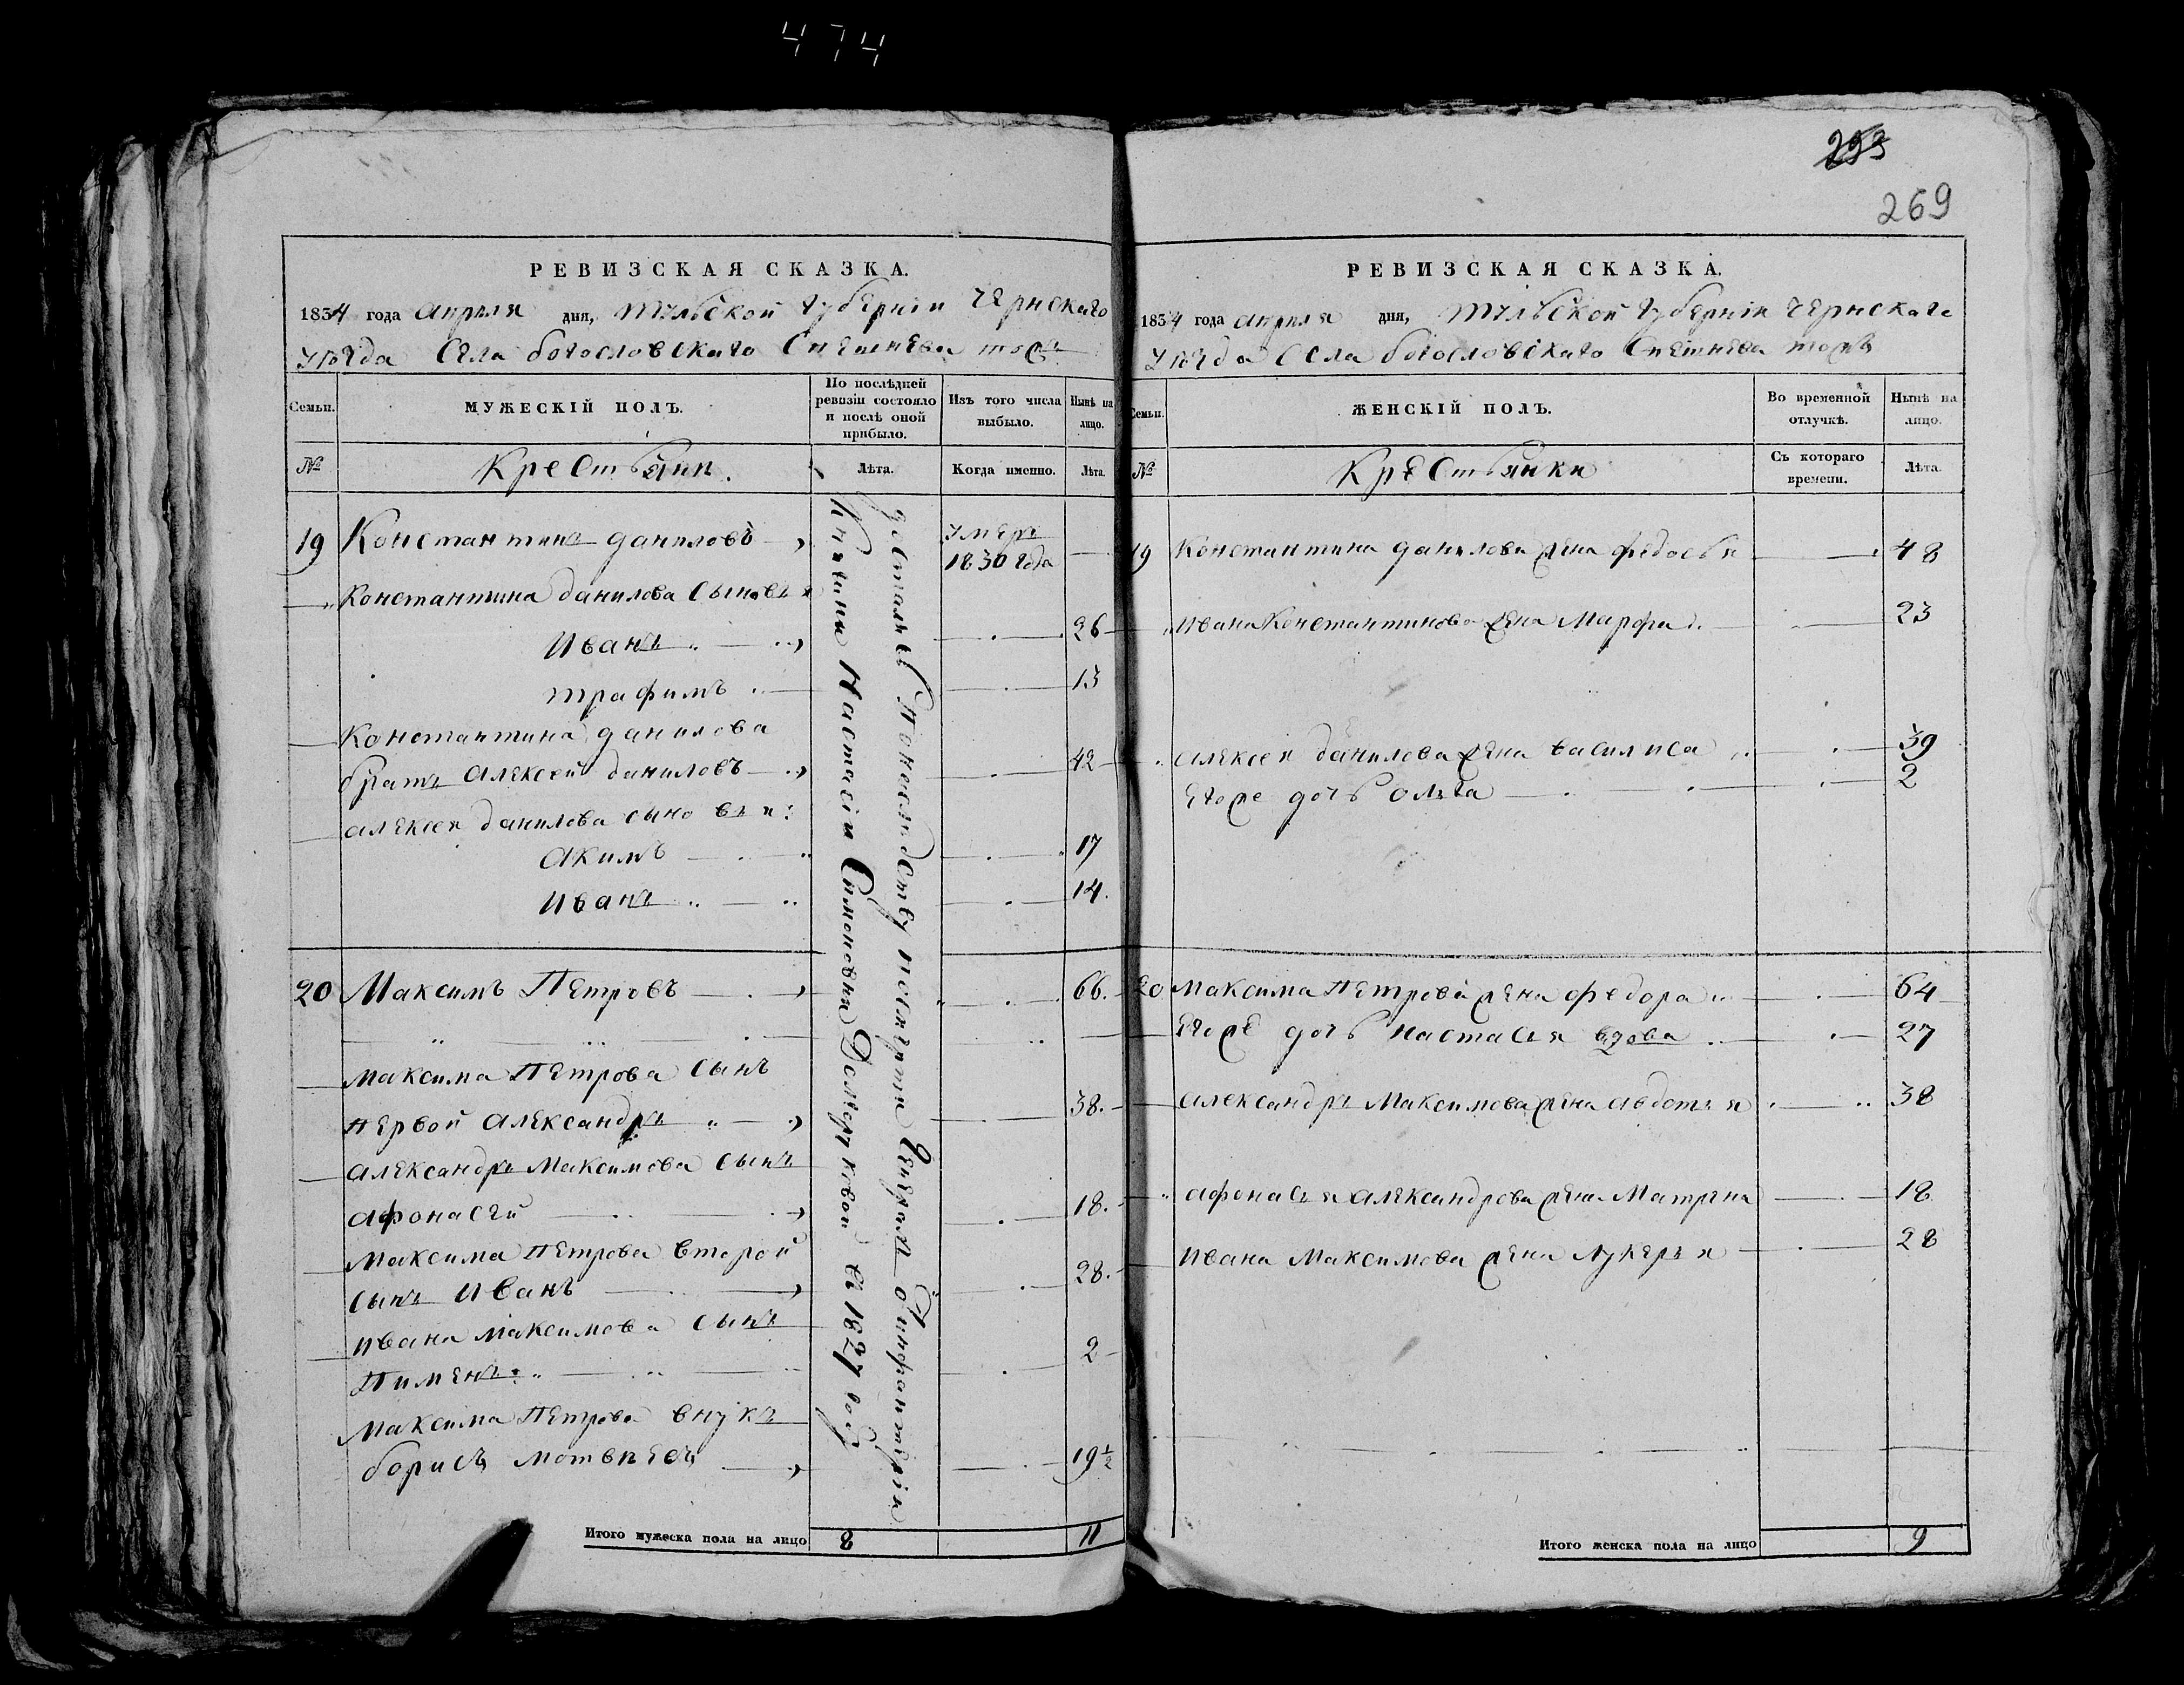 474
293
269
РЕВИЗСКАЯ СКАЗКА.
1834 года апреля дня, Тульской губернии Чернскаго
уезда Села богословскаго Спешнева тожъ
Семьи.
МУЖЕСКІЙ ПОЛЪ.
По послѣдней ревизіи состояло и послѣ оной прибыло.
Изъ того числа выбыло.
Нынѣ на лицо.
№
Крестьяни.
Лѣта.
Когда именно.
Лѣта.
19 Константинъ даниловъ умеръ 1830 года
Константина данилова Сыновья
Иванъ 26
трафимъ 13
Константина данилова
братъ алексей даниловъ 42
алексея данилова сыновья:
акимъ 17
иванъ 14.
20 Максимъ Петровъ 66.
Максима Петрова Сынъ
первой александръ 38.
александръ Максимова сынъ
афонасей 18.
Максима Петрова второй
сынъ иванъ 28.
ивана максимова сынъ
Пименъ 2
максима Петрова внукъ
борисъ мотвеевъ 19½
достались По наследству после
Княгини Настасіи Симоновны Долгоруковой въ 1827 году
Итого мужеска пола на лицо 8 11
РЕВИЗСКАЯ СКАЗКА.
1834 года апреля дня, Тульской губерніи Чернскаго
уезда Села богословскаго Спешнева тожъ
Семьи.
ЖЕНСКІЙ ПОЛЪ.
Во временной отлучкѣ.
Нынѣ на лицо.
№
Крестьянки
Съ котораго времени.
Лѣта.
19 Константина данилова жена федосья 48
ивана Константинова жена Марфа 23
алексея данилова жена василиса 39
егоже дочь ольга 2
20 Максима Петрова жена федора 64
егоже дочь настасья вдова 27
александръ Максимова жена авдотья 38
афонасья александрова жена Матрена 18
ивана Максимова жена лукерья 28
Итого женска пола на лицо 9